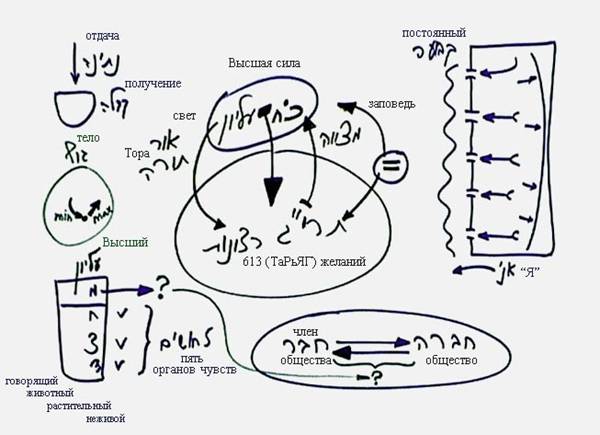 отдача
נתינה
получение
קבלה
тело
גוף
min
max
Высший
עליון
מ
ח
צ
ד
?
v
v
v
5 חושים
пять
органов чувств
говорящий
животный
растительный
неживой
Высшая сила
כח עליון
свет
אור
Тора
תורה
заповедь
מצווה
=
תרי"ג רצונות
613 (ТаРьЯГ) желаний
член
חבר
общества
חברה
общество
?
постоянный
קבוע
אני
“Я”